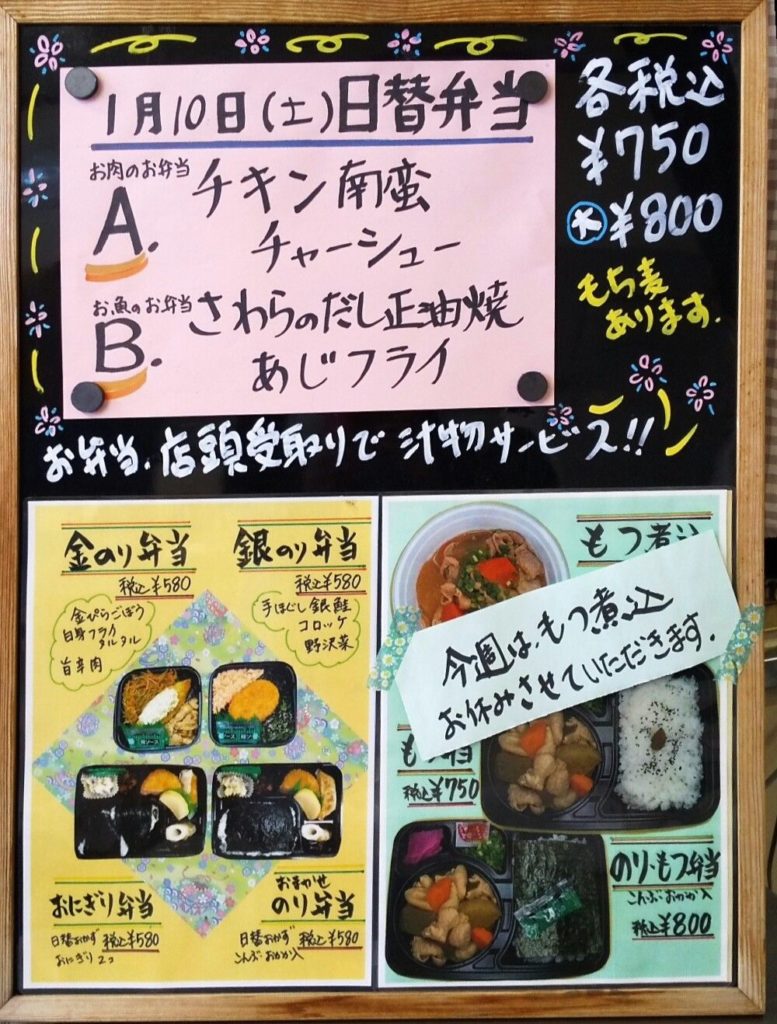 1月10日(土)日替弁当
お肉のお弁当
A.
チキン南蛮
チャーシュー
お魚のお弁当
B.
さわらのだし正油焼
あじフライ
各税込
¥750
大 ¥800
もち麦
あります.
お弁当、店頭受取りで 汁物サービス!!
金のり弁当
税込¥580
金ぴらごぼう
白身フライ
タルタル
旨辛肉
銀のり弁当
税込¥580
手ほぐし銀鮭
コロッケ
野沢菜
おにぎり弁当
日替おかず 税込¥580
おにぎり2コ
おまかせ
のり弁当
日替おかず 税込¥580
こんぶ・おかか入
もつ煮込
今週は、もつ煮込
お休みさせていただきます.
税込¥750
のり・もつ弁当
こんぶ・おかか入
税込¥800